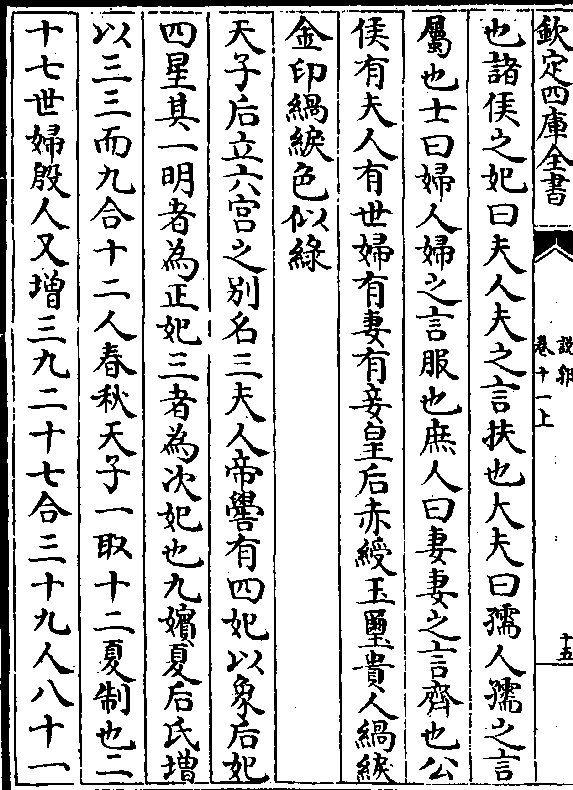 欽定四庫全書
說郛
卷十一上
十五
也諸侯之妃曰夫人夫之言扶也大夫曰孺人孺之言
屬也士曰婦人婦之言服也庶人曰妻妻之言齊也公
侯有夫人有世婦有妻有妾皇后赤綬玉璽貴人緺綟
金印緺綟色似綠
天子后立六宮之別名三夫人帝嚳有四妃以象后妃
四星其一明者為正妃三者為次妃也九嬪夏后氏增
以三三而九合十二人春秋天子一取十二夏制也二
十七世婦殷人又增三九二十七合三十九人八十一